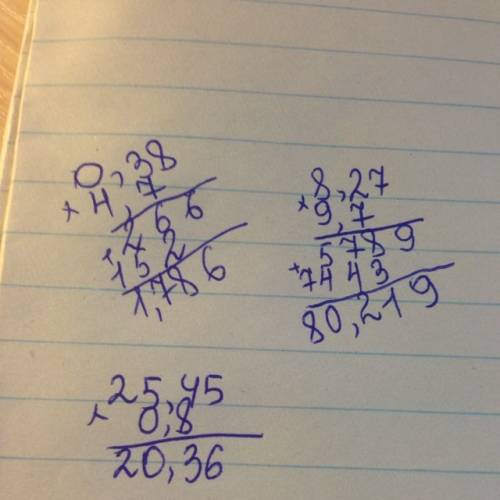 0,38
× 4,7
266
+ 152
1,786
× 8,27
9,7
5789
+ 7443
80,219
25,45
× 0,8
20,36